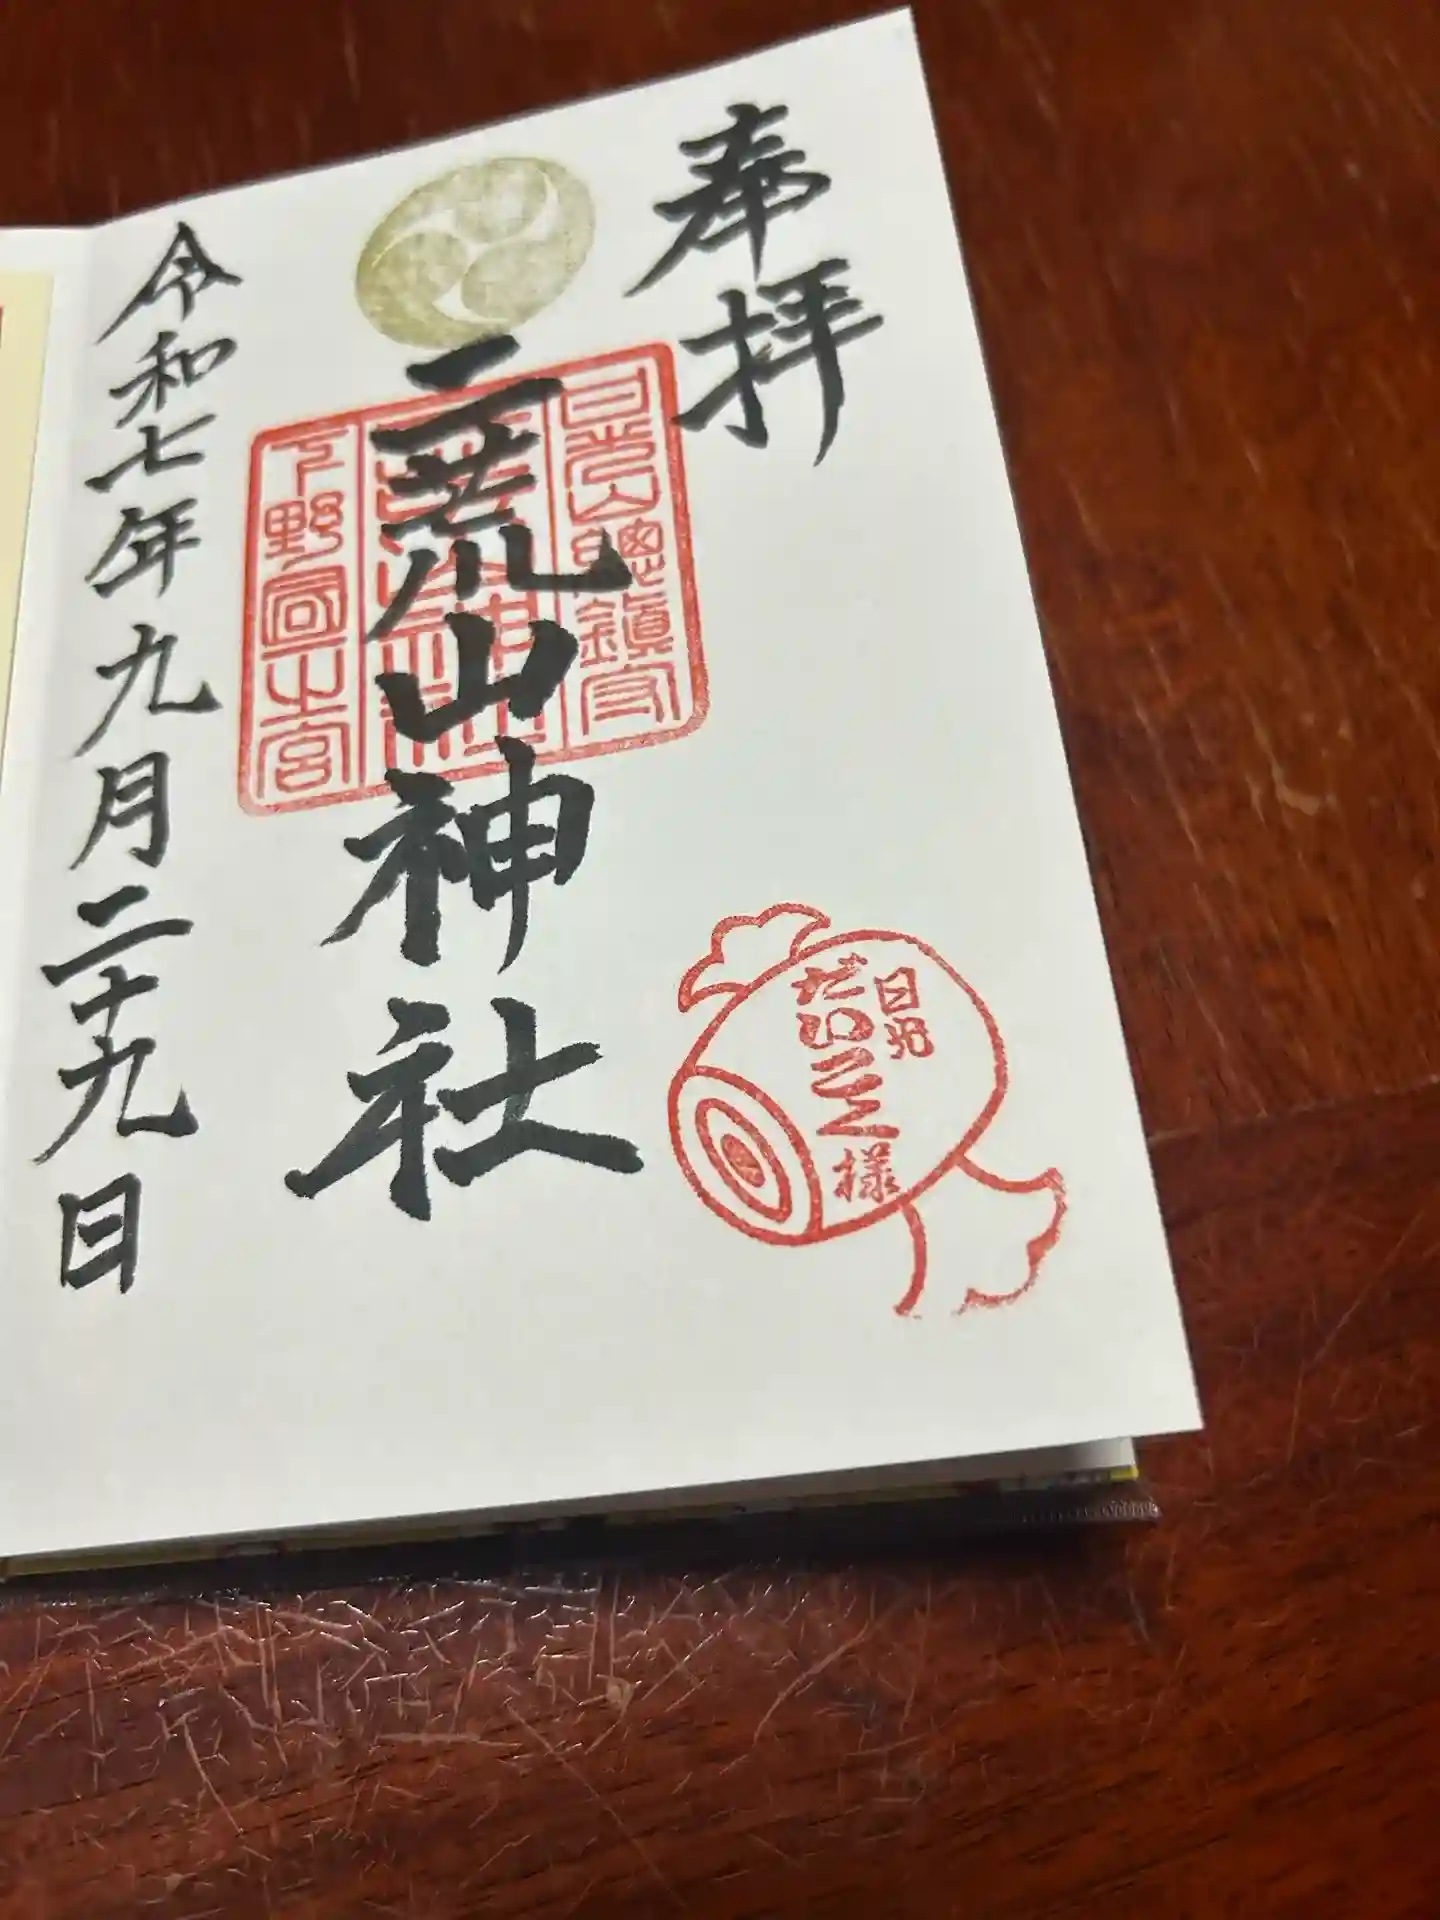 奉拝
日光山總鎮守
二荒山神社
下野國一之宮
令和七年九月二十九日
日光
だいこく様